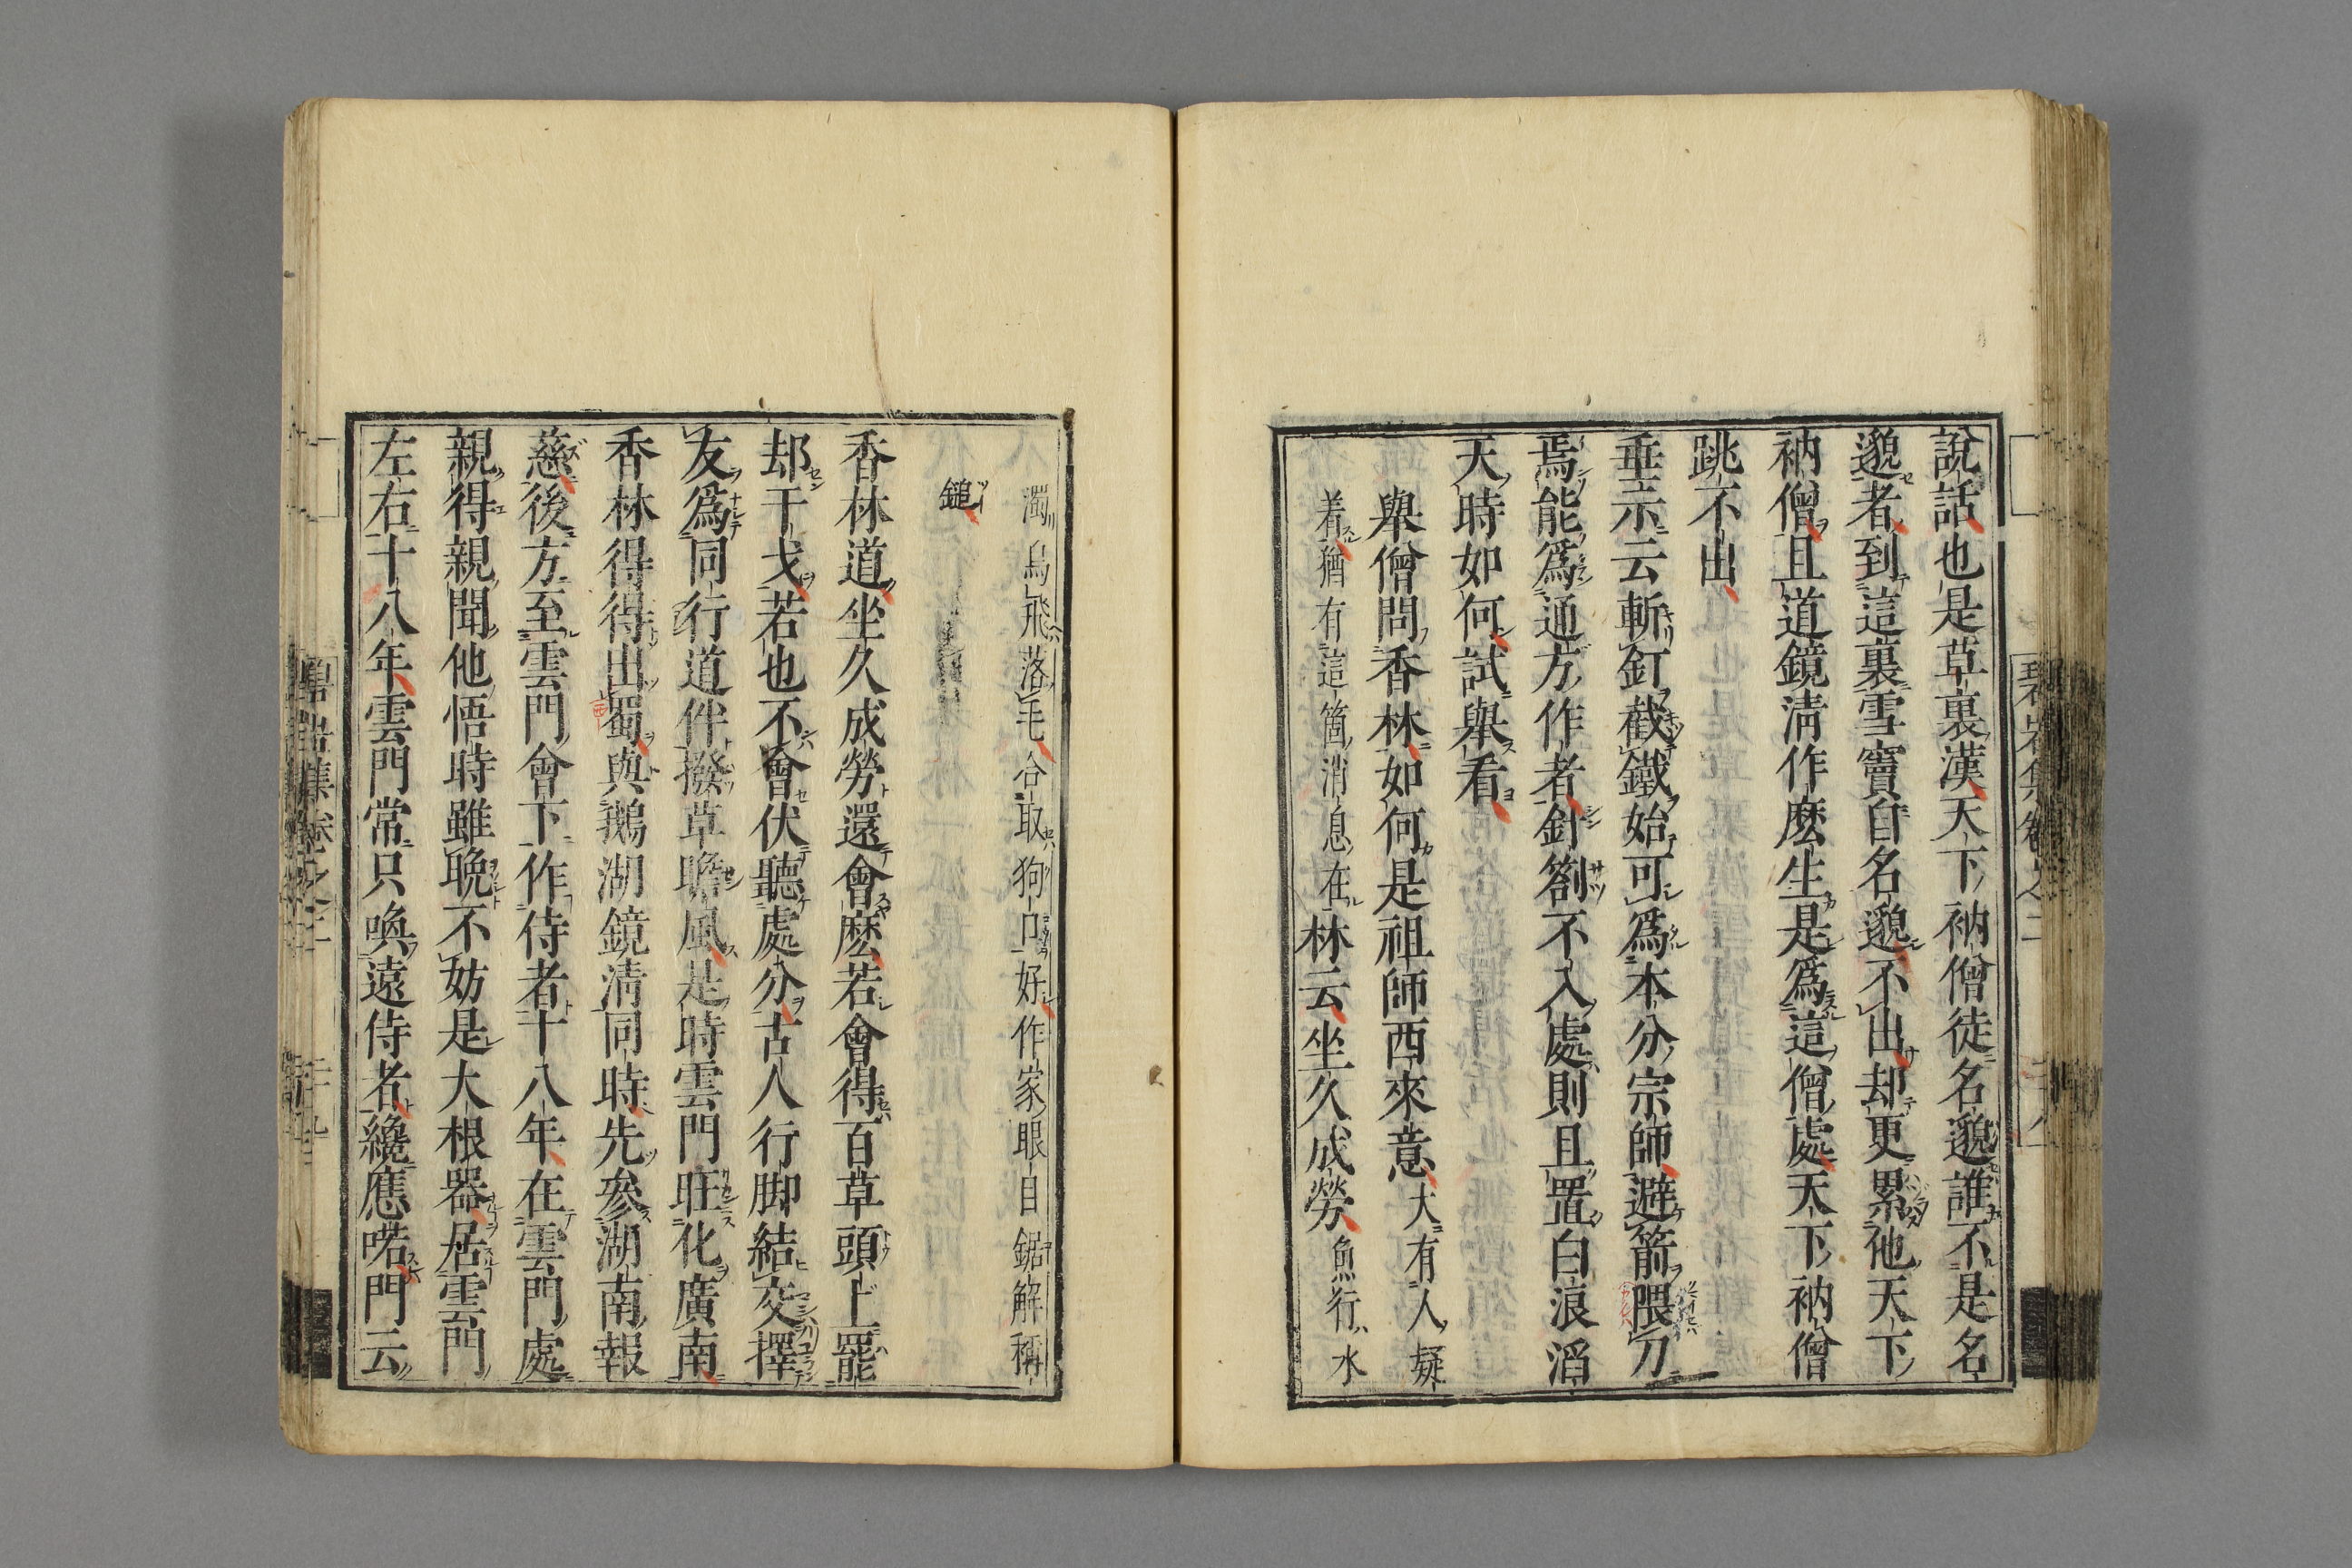 碧岩集卷之二
二十八
說話也是草裏漢天下衲僧徒名邈誰不是名
邈者到這裏雪竇自名邈不出却更累他天下
衲僧且道鏡清作麽生是爲這僧處天下衲僧
跳不出
垂示云斬釘截鐵始可爲本分宗師避箭隈刀
焉能爲通方作者針劄不入處則且置白浪滔
天時如何試舉看
舉僧問香林如何是祖師西來意大有人疑
着猶有這箇消息在林云坐久成勞魚行水
濁鳥飛落毛合取狗口好作家眼目鋸解稱
鎚
香林道坐久成勞還會麽若會得百草頭上罷
却干戈若也不會伏聽處分古人行脚結交擇
友爲同行道伴撥草瞻風是時雲門旺化廣南
香林得得出蜀與鵝湖鏡清同時先參湖南報
慈後方至雲門會下作侍者十八年在雲門處
親得親聞他悟時雖晚不妨是大根器居雲門
左右十八年雲門常只喚遠侍者纔應喏門云
二十九